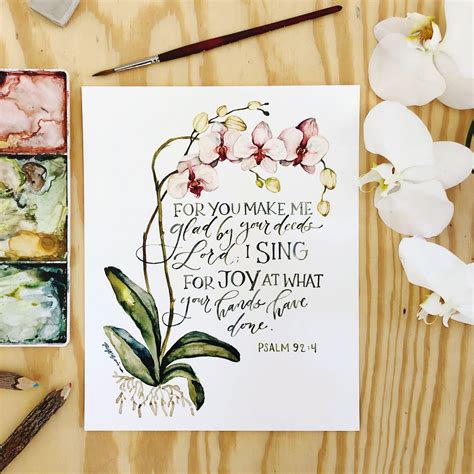 FOR YOU MAKE ME
glad by your deeds
Lord; I SING
FOR JOY AT WHAT
your hands have
done.
PSALM 92:4